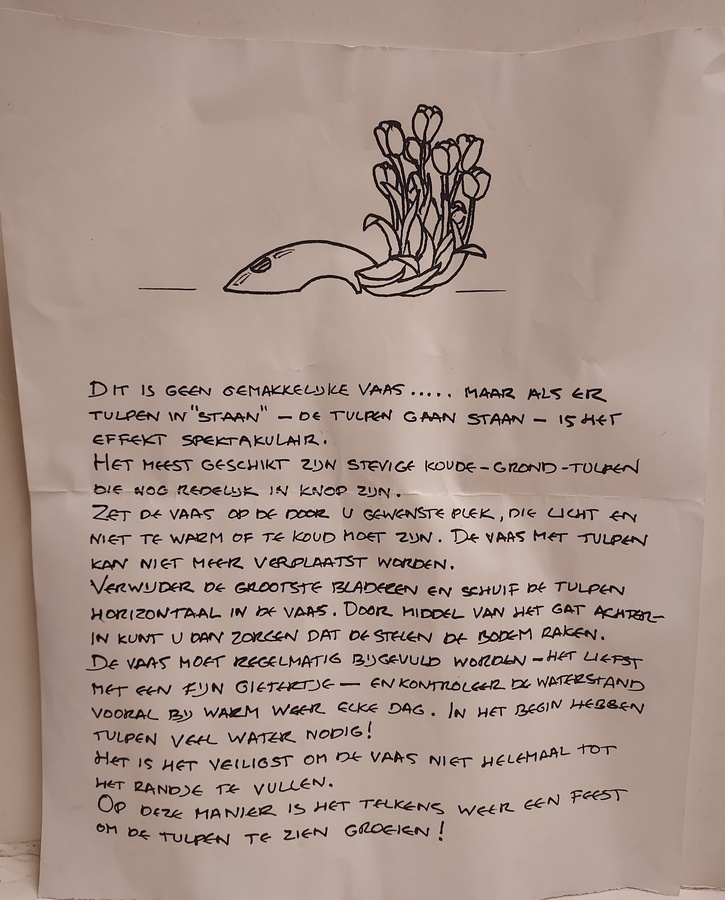 DIT IS GEEN GEMAKKELIJKE VAAS ..... MAAR ALS ER
TULPEN IN "STAAN" – DE TULPEN GAAN STAAN – IS HET
EFFEKT SPEKTAKULAIR.
HET MEEST GESCHIKT ZIJN STEVIGE KOUDE-GROND-TULPEN
DIE NOG REDELIJK IN KNOP ZIJN.
ZET DE VAAS OP DE DOOR U GEWENSTE PLEK, DIE LICHT EN
NIET TE WARM OF TE KOUD MOET ZIJN. DE VAAS MET TULPEN
KAN NIET MEER VERPLAATST WORDEN.
VERWIJDER DE GROOTSTE BLADEREN EN SCHUIF DE TULPEN
HORIZONTAAL IN DE VAAS. DOOR MIDDEL VAN HET GAT ACHTER-
IN KUNT U DAN ZORGEN DAT DE STELEN DE BODEM RAKEN.
DE VAAS MOET REGELMATIG BIJGEVULD WORDEN – HET LIEFST
MET EEN FIJN GIETERTJE – EN KONTROLEER DE WATERSTAND
VOORAL BIJ WARM WEER ELKE DAG. IN HET BEGIN HEBBEN
TULPEN VEEL WATER NODIG!
HET IS HET VEILIGST OM DE VAAS NIET HELEMAAL TOT
HET RANDJE TE VULLEN.
OP DEZE MANIER IS HET TELKENS WEER EEN FEEST
OM DE TULPEN TE ZIEN GROEIEN!